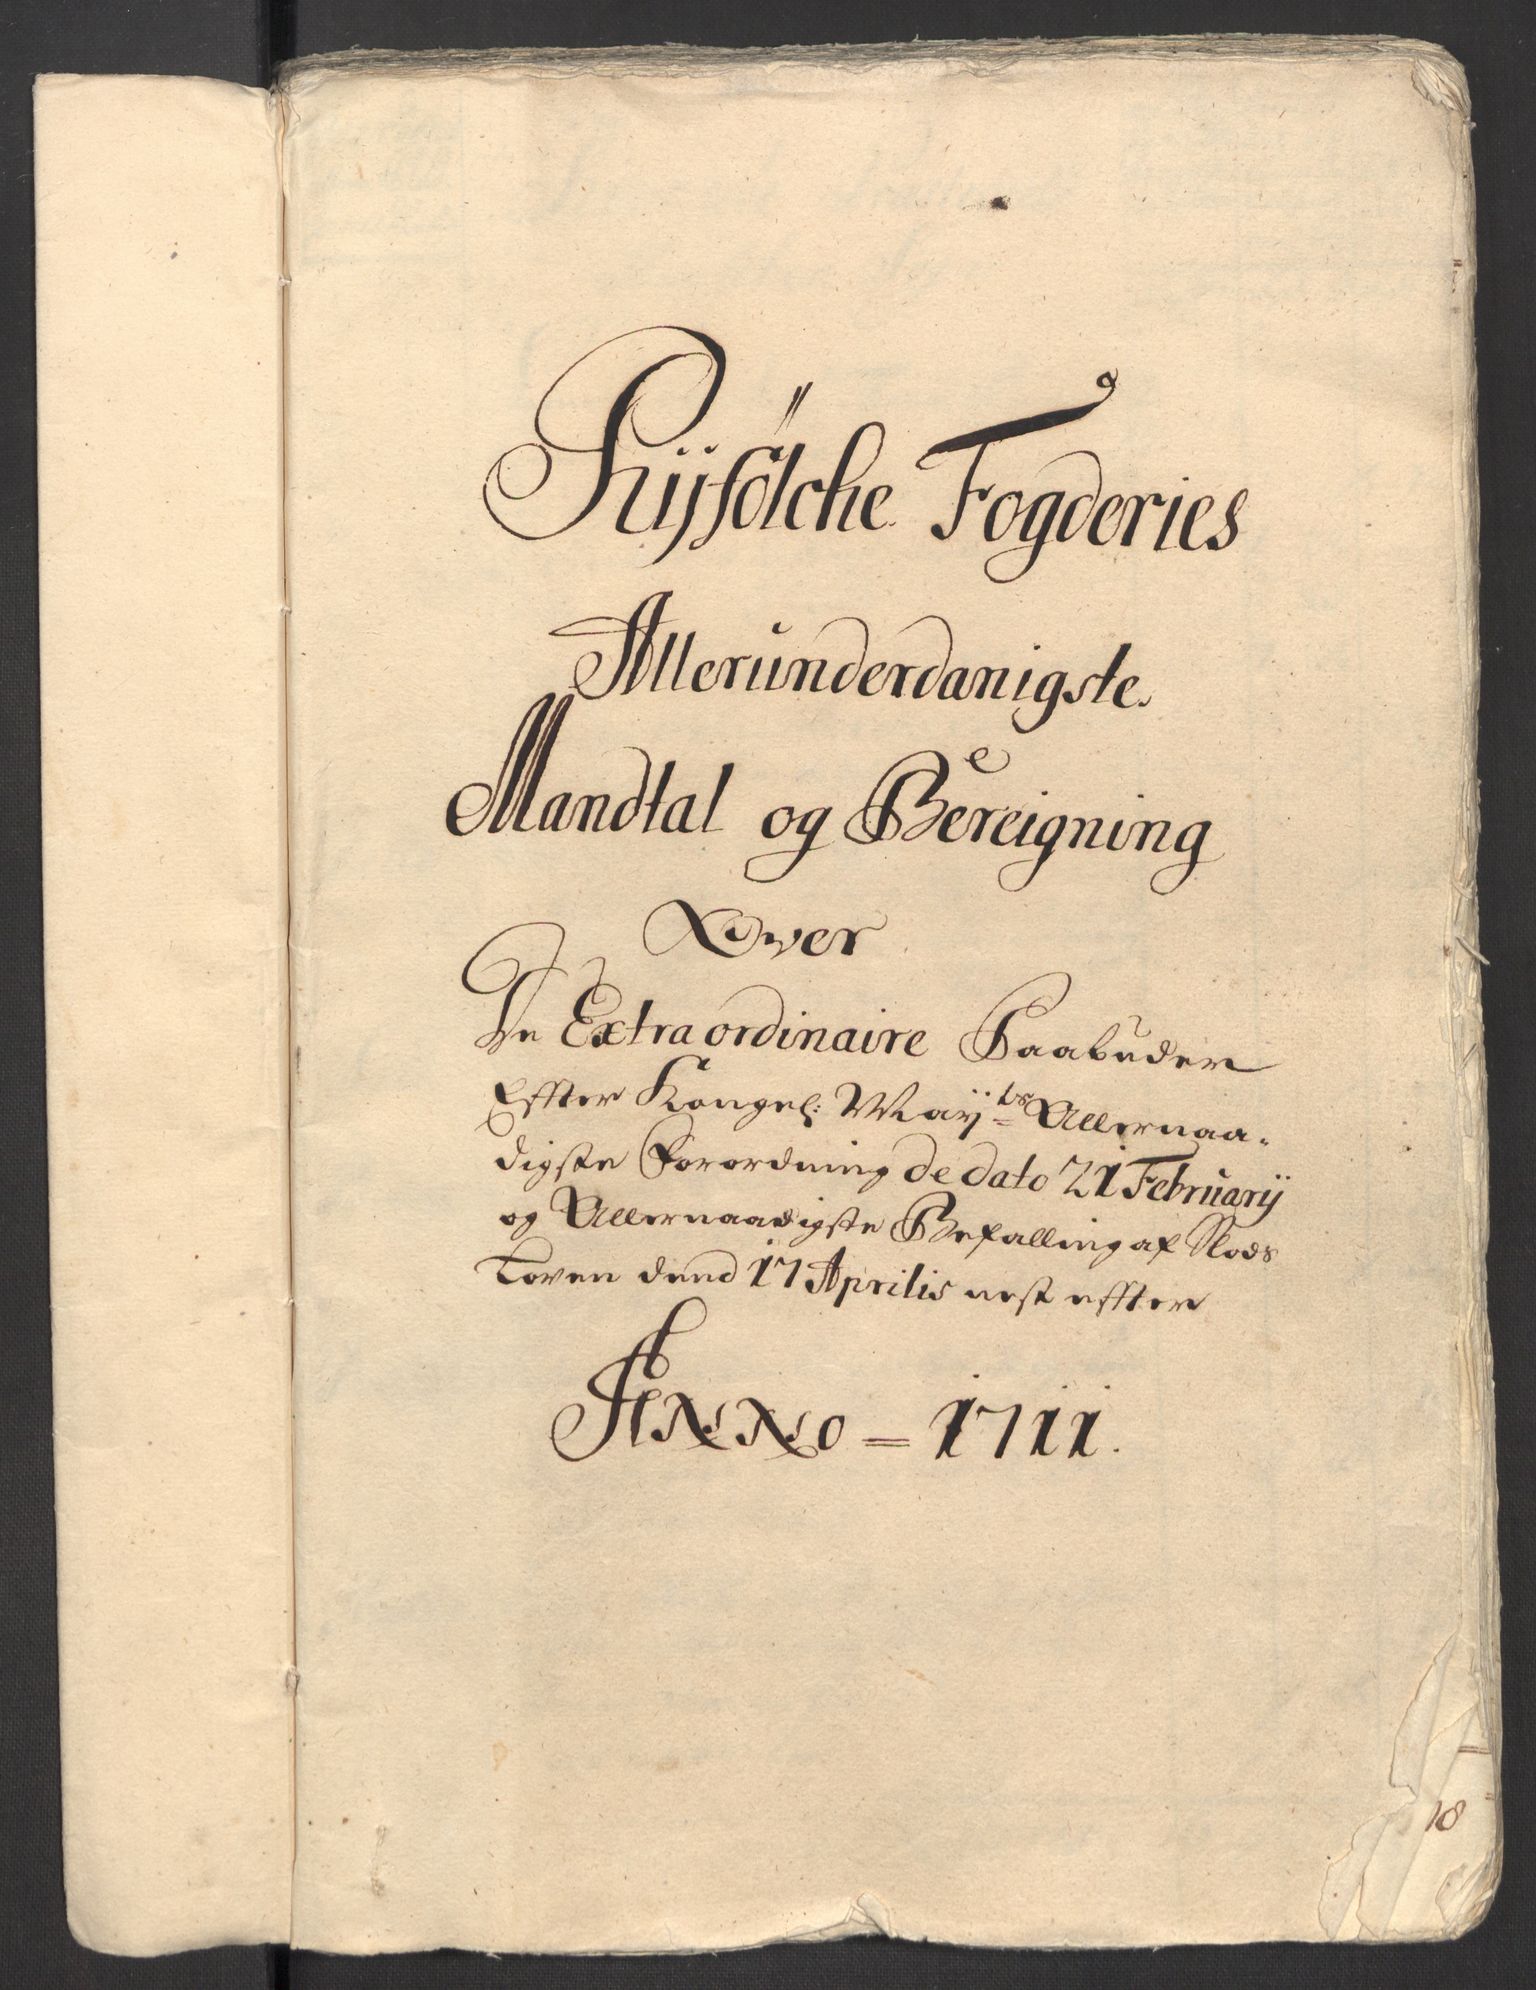 Ryfølche Fogderies
Allerunderdanigste
Mandtal og Bereigning
Over
De Extraordinaire Paabuder
Effter Kongel: Mayts Allernaa-
digste Forordning de dato 21 February
og Allernaadigste Befalling af Slods
Loven dend 17 Aprilis nest effter
ANNO = 1711.
18